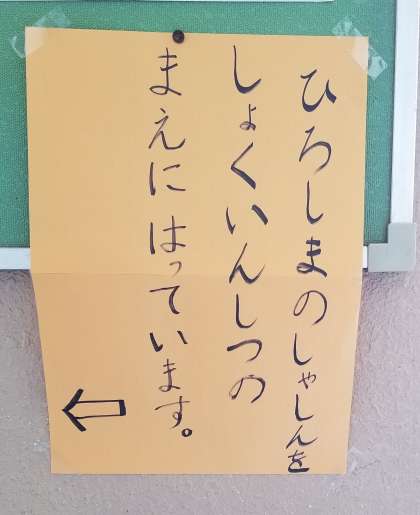 ひろしまのしゃしんを
しょくいんしつの
まえに はっています。